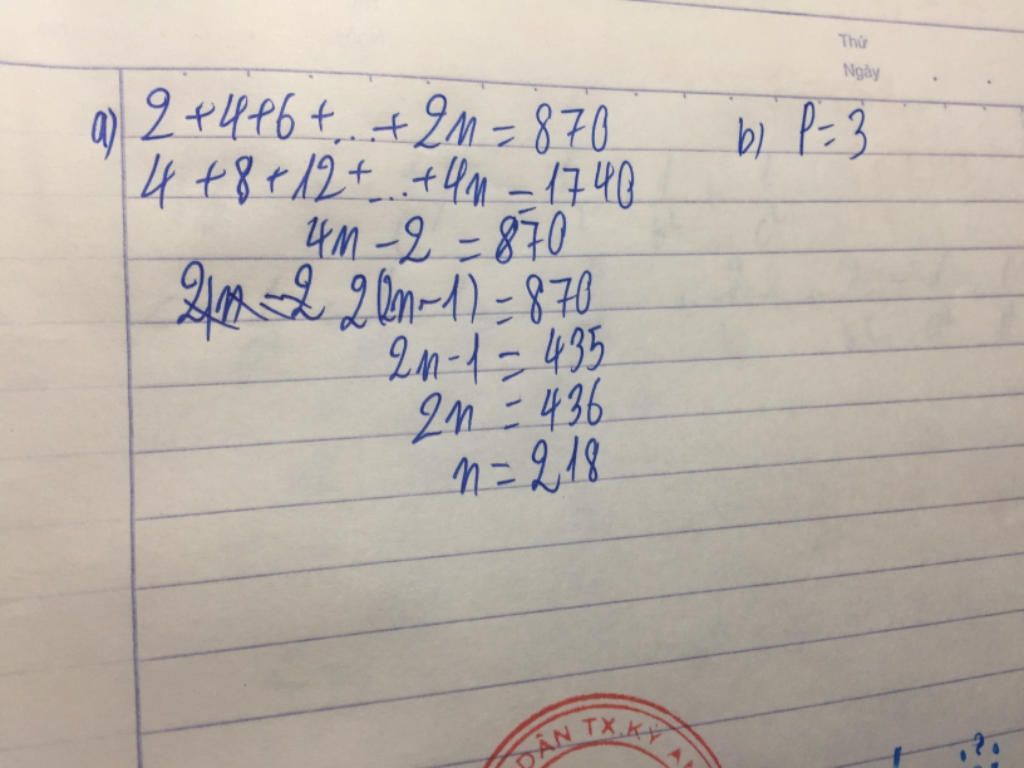 Thứ
Ngày
a) 2+4+6+...+2n=870
b) P=3
4+8+12+...+4n=1740
4n-2=870
2(2n-1)=870
2n-1=435
2n=436
n=218
DÂN TX.KỲ A